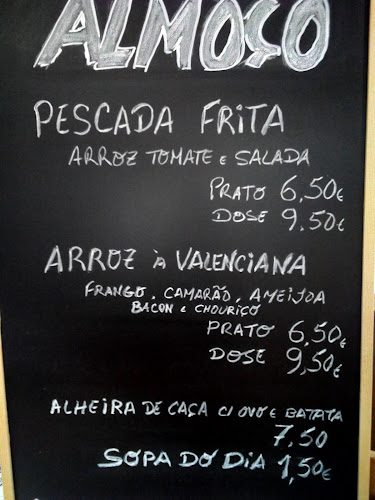 ALMOÇO
PESCADA FRITA
ARROZ TOMATE E SALADA
PRATO 6,50€
DOSE 9.50€
ARROZ à VALENCIANA
FRANGO, CAMARÃO, AMEIJOA
BACON E CHOURIÇO
PRATO 6,50€
DOSE 9,50€
ALHEIRA DE CAÇA C/ OVO E BATATA
7,50
SOPA DO DIA 1,50€